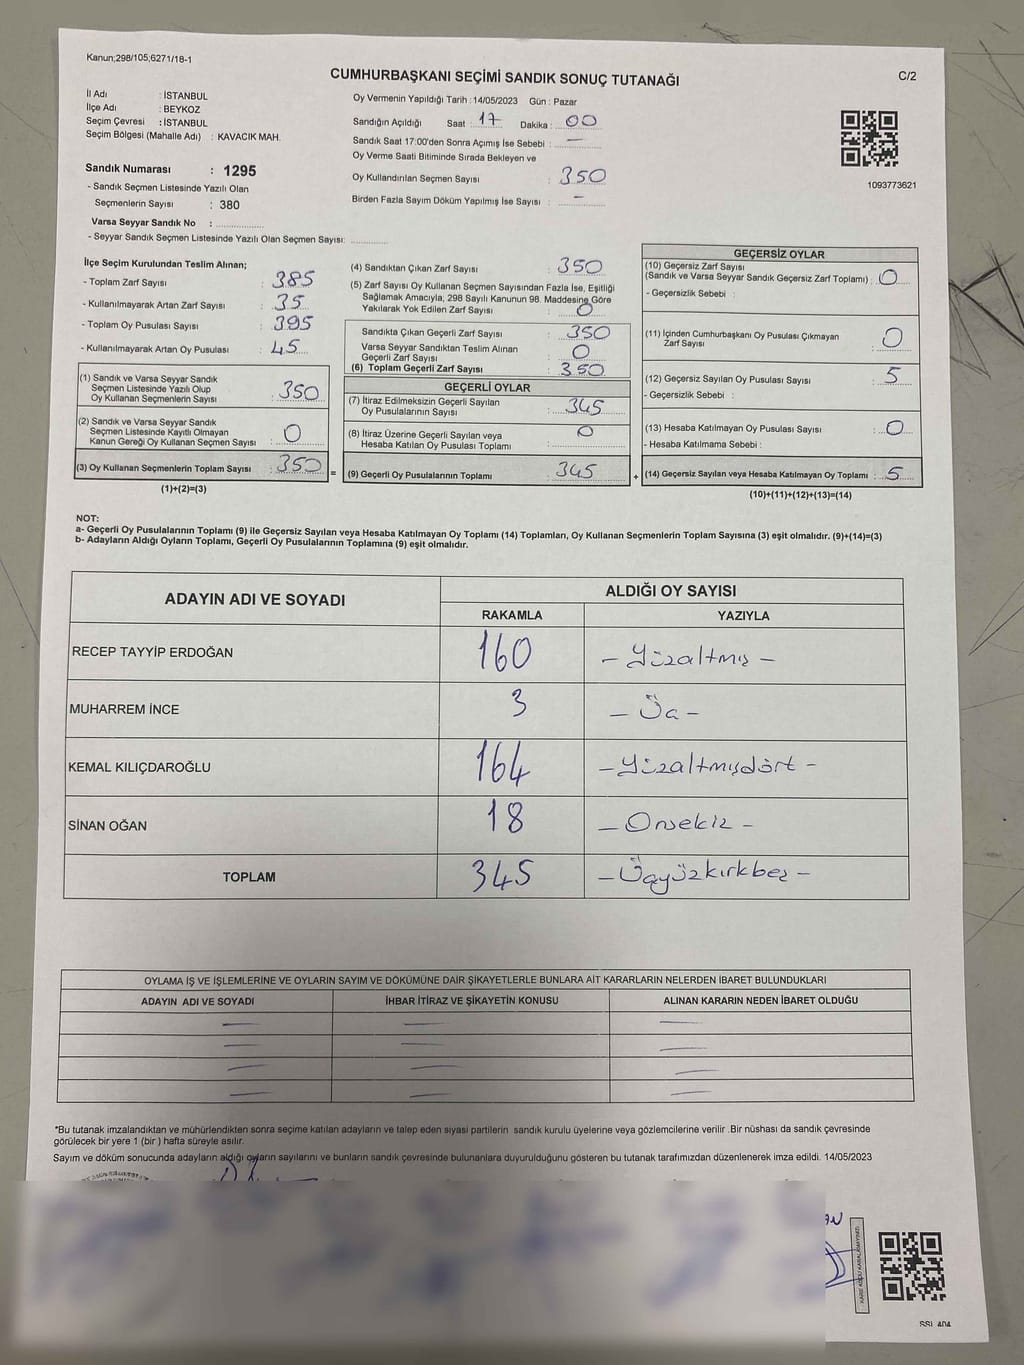 Kanun;298/105;6271/18-1
CUMHURBAŞKANI SEÇİMİ SANDIK SONUÇ TUTANAĞI
C/2
İl Adı : İSTANBUL
İlçe Adı : BEYKOZ
Seçim Çevresi : İSTANBUL
Seçim Bölgesi (Mahalle Adı) : KAVACIK MAH.
Sandık Numarası : 1295
- Sandık Seçmen Listesinde Yazılı Olan
Seçmenlerin Sayısı : 380
Varsa Seyyar Sandık No :
- Seyyar Sandık Seçmen Listesinde Yazılı Olan Seçmen Sayısı:
Oy Vermenin Yapıldığı Tarih : 14/05/2023 Gün : Pazar
Sandığın Açıldığı Saat : 17 Dakika : 00
Sandık Saat 17:00'den Sonra Açımış İse Sebebi : —
Oy Verme Saati Bitiminde Sırada Bekleyen ve
Oy Kullandırılan Seçmen Sayısı : 350
Birden Fazla Sayım Döküm Yapılmış İse Sayısı : -
1093773621
İlçe Seçim Kurulundan Teslim Alınan;
- Toplam Zarf Sayısı : 385
- Kullanılmayarak Artan Zarf Sayısı : 35
- Toplam Oy Pusulası Sayısı : 395
- Kullanılmayarak Artan Oy Pusulası : 45
(1) Sandık ve Varsa Seyyar Sandık
Seçmen Listesinde Yazılı Olup
Oy Kullanan Seçmenlerin Sayısı : 350
(2) Sandık ve Varsa Seyyar Sandık
Seçmen Listesinde Kayıtlı Olmayan
Kanun Gereği Oy Kullanan Seçmen Sayısı : 0
(3) Oy Kullanan Seçmenlerin Toplam Sayısı : 350 =
(1)+(2)=(3)
(4) Sandıktan Çıkan Zarf Sayısı : 350
(5) Zarf Sayısı Oy Kullanan Seçmen Sayısından Fazla İse, Eşitliği
Sağlamak Amacıyla, 298 Sayılı Kanunun 98. Maddesine Göre
Yakılarak Yok Edilen Zarf Sayısı : 0
Sandıkta Çıkan Geçerli Zarf Sayısı : 350
Varsa Seyyar Sandıktan Teslim Alınan
Geçerli Zarf Sayısı : 0
(6) Toplam Geçerli Zarf Sayısı : 350
GEÇERLİ OYLAR
(7) İtiraz Edilmeksizin Geçerli Sayılan
Oy Pusulalarının Sayısı : 345
(8) İtiraz Üzerine Geçerli Sayılan veya
Hesaba Katılan Oy Pusulası Toplamı : 0
(9) Geçerli Oy Pusulalarının Toplamı : 345 +
GEÇERSİZ OYLAR
(10) Geçersiz Zarf Sayısı
(Sandık ve Varsa Seyyar Sandık Geçersiz Zarf Toplamı) : 0
- Geçersizlik Sebebi :
(11) İçinden Cumhurbaşkanı Oy Pusulası Çıkmayan
Zarf Sayısı : 0
(12) Geçersiz Sayılan Oy Pusulası Sayısı : 5
- Geçersizlik Sebebi :
(13) Hesaba Katılmayan Oy Pusulası Sayısı : 0
- Hesaba Katılmama Sebebi :
(14) Geçersiz Sayılan veya Hesaba Katılmayan Oy Toplamı : 5
(10)+(11)+(12)+(13)=(14)
NOT:
a- Geçerli Oy Pusulalarının Toplamı (9) ile Geçersiz Sayılan veya Hesaba Katılmayan Oy Toplamı (14) Toplamları, Oy Kullanan Seçmenlerin Toplam Sayısına (3) eşit olmalıdır. (9)+(14)=(3)
b- Adayların Aldığı Oyların Toplamı, Geçerli Oy Pusulalarının Toplamına (9) eşit olmalıdır.
ADAYIN ADI VE SOYADI
ALDIĞI OY SAYISI
RAKAMLA YAZIYLA
RECEP TAYYİP ERDOĞAN 160 - Yüzaltmış -
MUHARREM İNCE 3 - Üç -
KEMAL KILIÇDAROĞLU 164 - Yüzaltmışdört -
SİNAN OĞAN 18 - Onsekiz -
TOPLAM 345 - Üçyüzkırkbeş -
OYLAMA İŞ VE İŞLEMLERİNE VE OYLARIN SAYIM VE DÖKÜMÜNE DAİR ŞİKAYETLERLE BUNLARA AİT KARARLARIN NELERDEN İBARET BULUNDUKLARI
ADAYIN ADI VE SOYADI İHBAR İTİRAZ VE ŞİKAYETİN KONUSU ALINAN KARARIN NEDEN İBARET OLDUĞU
— — —
— — —
— — —
— — —
*Bu tutanak imzalandıktan ve mühürlendikten sonra seçime katılan adayların ve talep eden siyasi partilerin sandık kurulu üyelerine veya gözlemcilerine verilir .Bir nüshası da sandık çevresinde
görülecek bir yere 1 (bir ) hafta süreyle asılır.
Sayım ve döküm sonucunda adayların aldığı oyların sayılarını ve bunların sandık çevresinde bulunanlara duyurulduğunu gösteren bu tutanak tarafımızdan düzenlenerek imza edildi. 14/05/2023